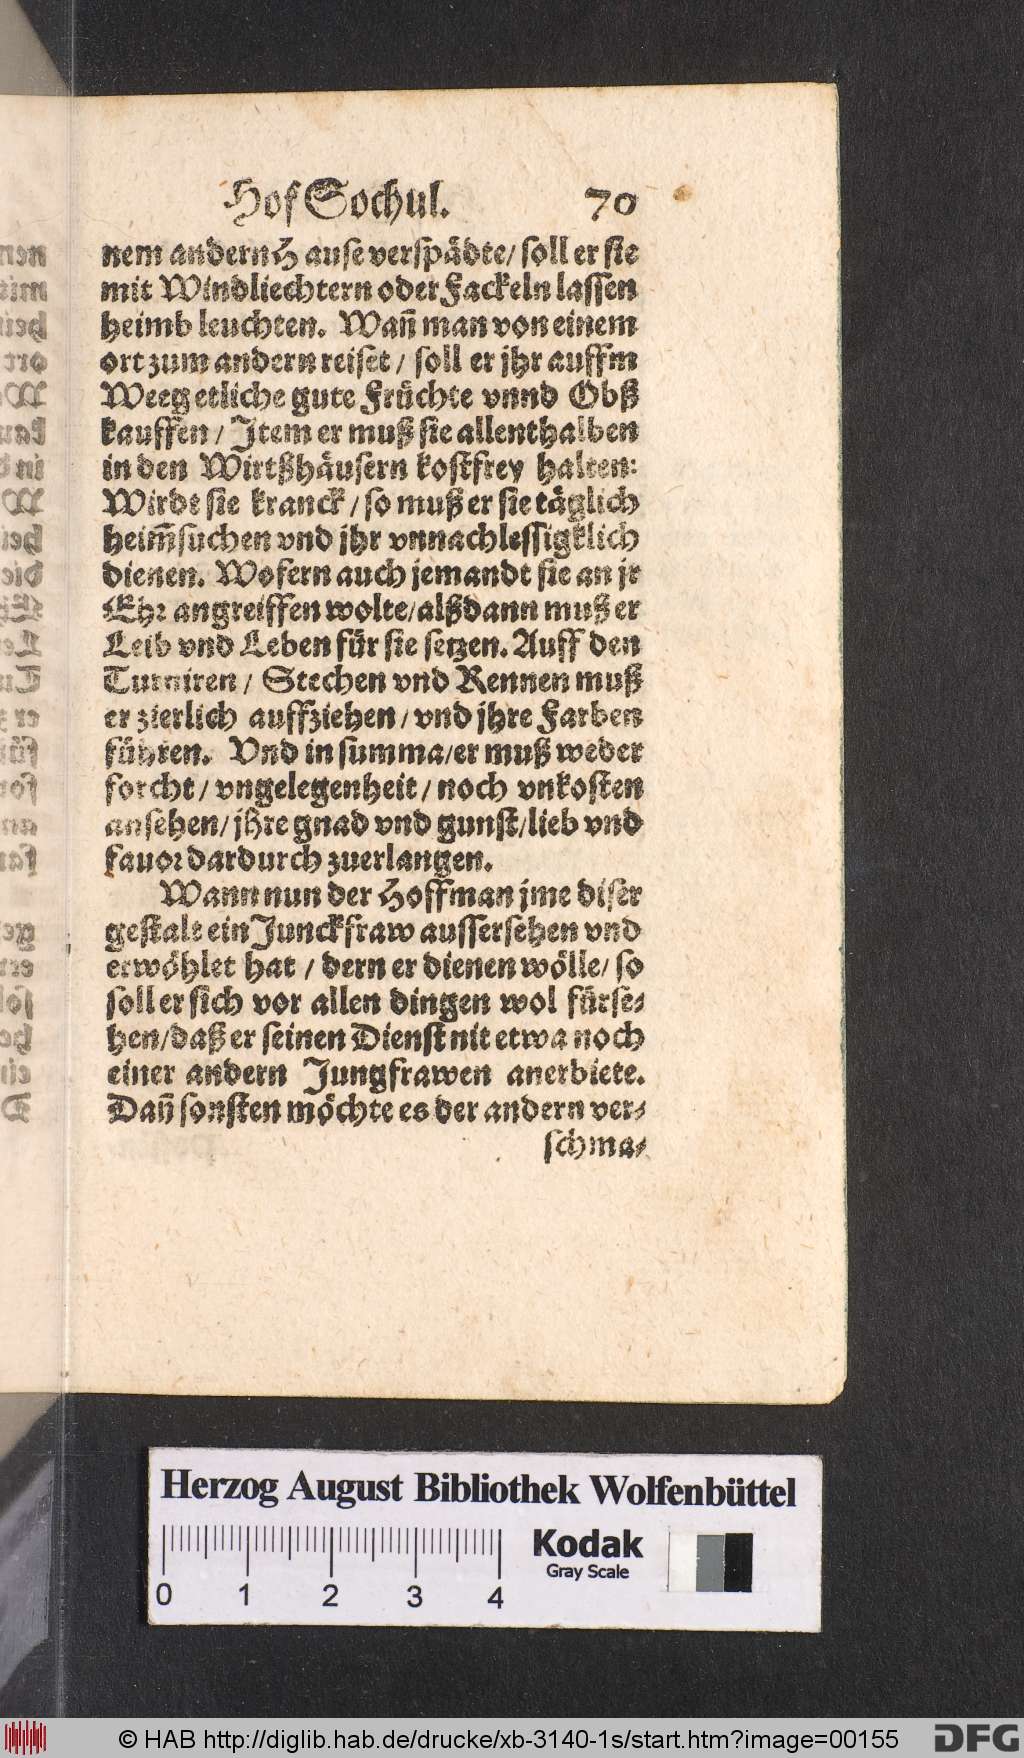 Hof Sochul. 70
nem andern Hause verspädte/ soll er sie
mit Windliechtern oder Fackeln lassen
heimb leuchten. Wañ man von einem
ort zum andern reiset / soll er jhr auffm
Weeg etliche gute Früchte vnnd Obß
kauffen / Item er muß sie allenthalben
in den Wirtßhäusern kostfrey halten:
Wirdt sie kranck / so muß er sie täglich
heim̃suchen vnd jhr vnnachlessigklich
dienen. Wofern auch jemandt sie an jr
Ehr angreiffen wolte/ alßdann muß er
Leib vnd Leben für sie setzen. Auff den
Turniren / Stechen vnd Rennen muß
er zierlich auffziehen / vnd jhre Farben
führen. Vnd in summa/ er muß weder
forcht / vngelegenheit / noch vnkosten
ansehen/ jhre gnad vnd gunst/ lieb vnd
fauor dardurch zuerlangen.
Wann nun der Hoffman jme diser
gestalt ein Junckfraw aussersehen vnd
erwöhlet hat / dern er dienen wölle/ so
soll er sich vor allen dingen wol fürse⸗
hen/ daß er seinen Dienst nit etwa noch
einer andern Jungfrawen anerbiete.
Dañ sonsten möchte es der andern ver⸗
schma⸗
Herzog August Bibliothek Wolfenbüttel
Kodak
Gray Scale
0 1 2 3 4
© HAB http://diglib.hab.de/drucke/xb-3140-1s/start.htm?image=00155
DFG